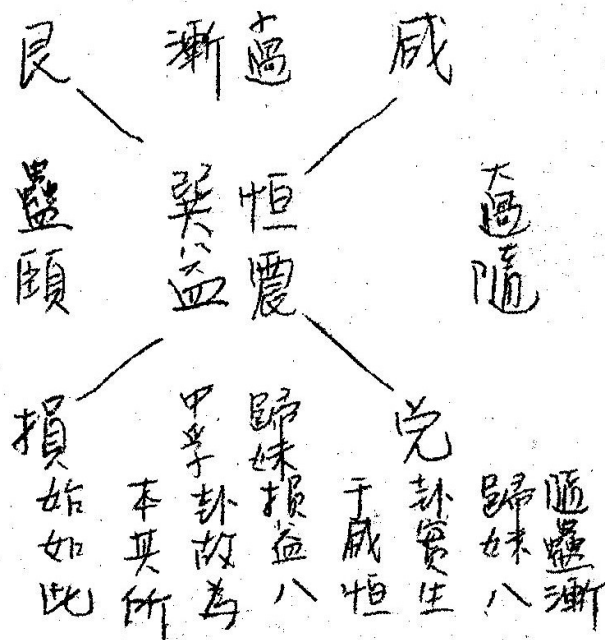 艮 漸 小過 咸
蠱 巽 恒 大過
頤 益 震 隨
損 中孚 歸妹 兌
隨蠱漸
歸妹八
卦實生
于咸恒
損益八
卦故為
本其所
始如此